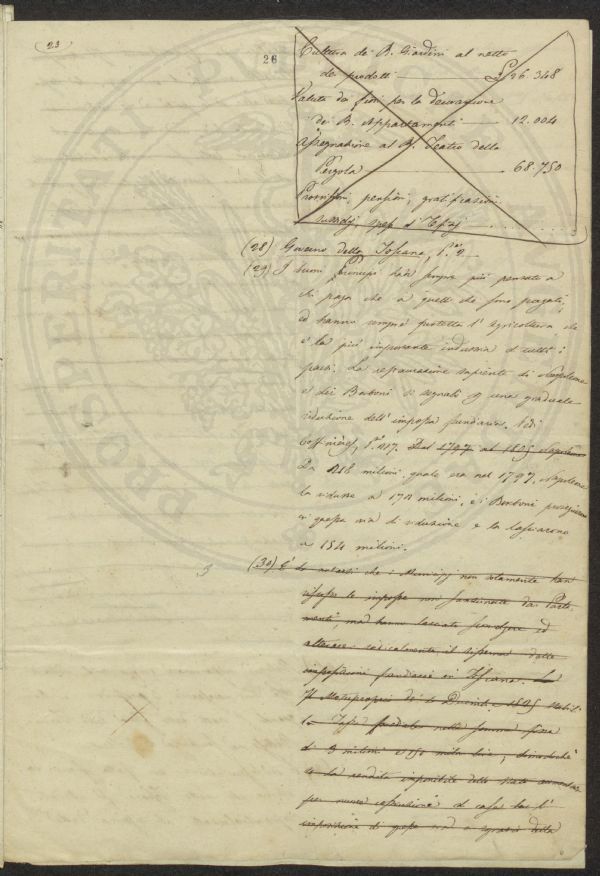 (23)
26
Cultura de R. Giardini al netto
dei prodotti £ 26.348
Valuta dei fiori per la decorazione
dei R. Appartamenti 12.004
Assegnazione al R. Teatro della
Pergola 68.750
Provvisioni, pensioni, gratificazioni
sussidj, spese d'
(28) Governo della Toscana, p. 2
(29) I buoni Principi han sempre più pensato a
chi paga che a quelli che sono pagati,
ed hanno sempre protetta l'agricoltura che
è la più importante industria di tutti i
paesi. La restaurazione sapiente di Napoleone
e dei Borboni si segnalò p una graduale
riduzione dell'imposta fondiaria. Vedi
p. 117. Dal 1797 al 1805 Napoleone
Da 218 milioni quale era nel 1797, Napoleone
la ridusse a 172 milioni, e i Borboni proseguirono
in questa via di riduzione e la lasciarono
a 154 milioni.
(30) E' da notarsi che i Municipj non solamente han
riscosse le imposte non sanzionate da Parla-
menti, ma hanno lasciato ed
alterare radicalmente il sistema della
imposizione fondiaria in Toscana. La
Il Motuproprio de' 1825 stabilì
la Tassa prediale nella somma fissa
di 3 milioni e 150 mila lire, dimodochè
se la rendita imponibile dello Stato aumentasse
per nuove costruzioni di case ecc l'
imposizione di queste andò a sgravio della